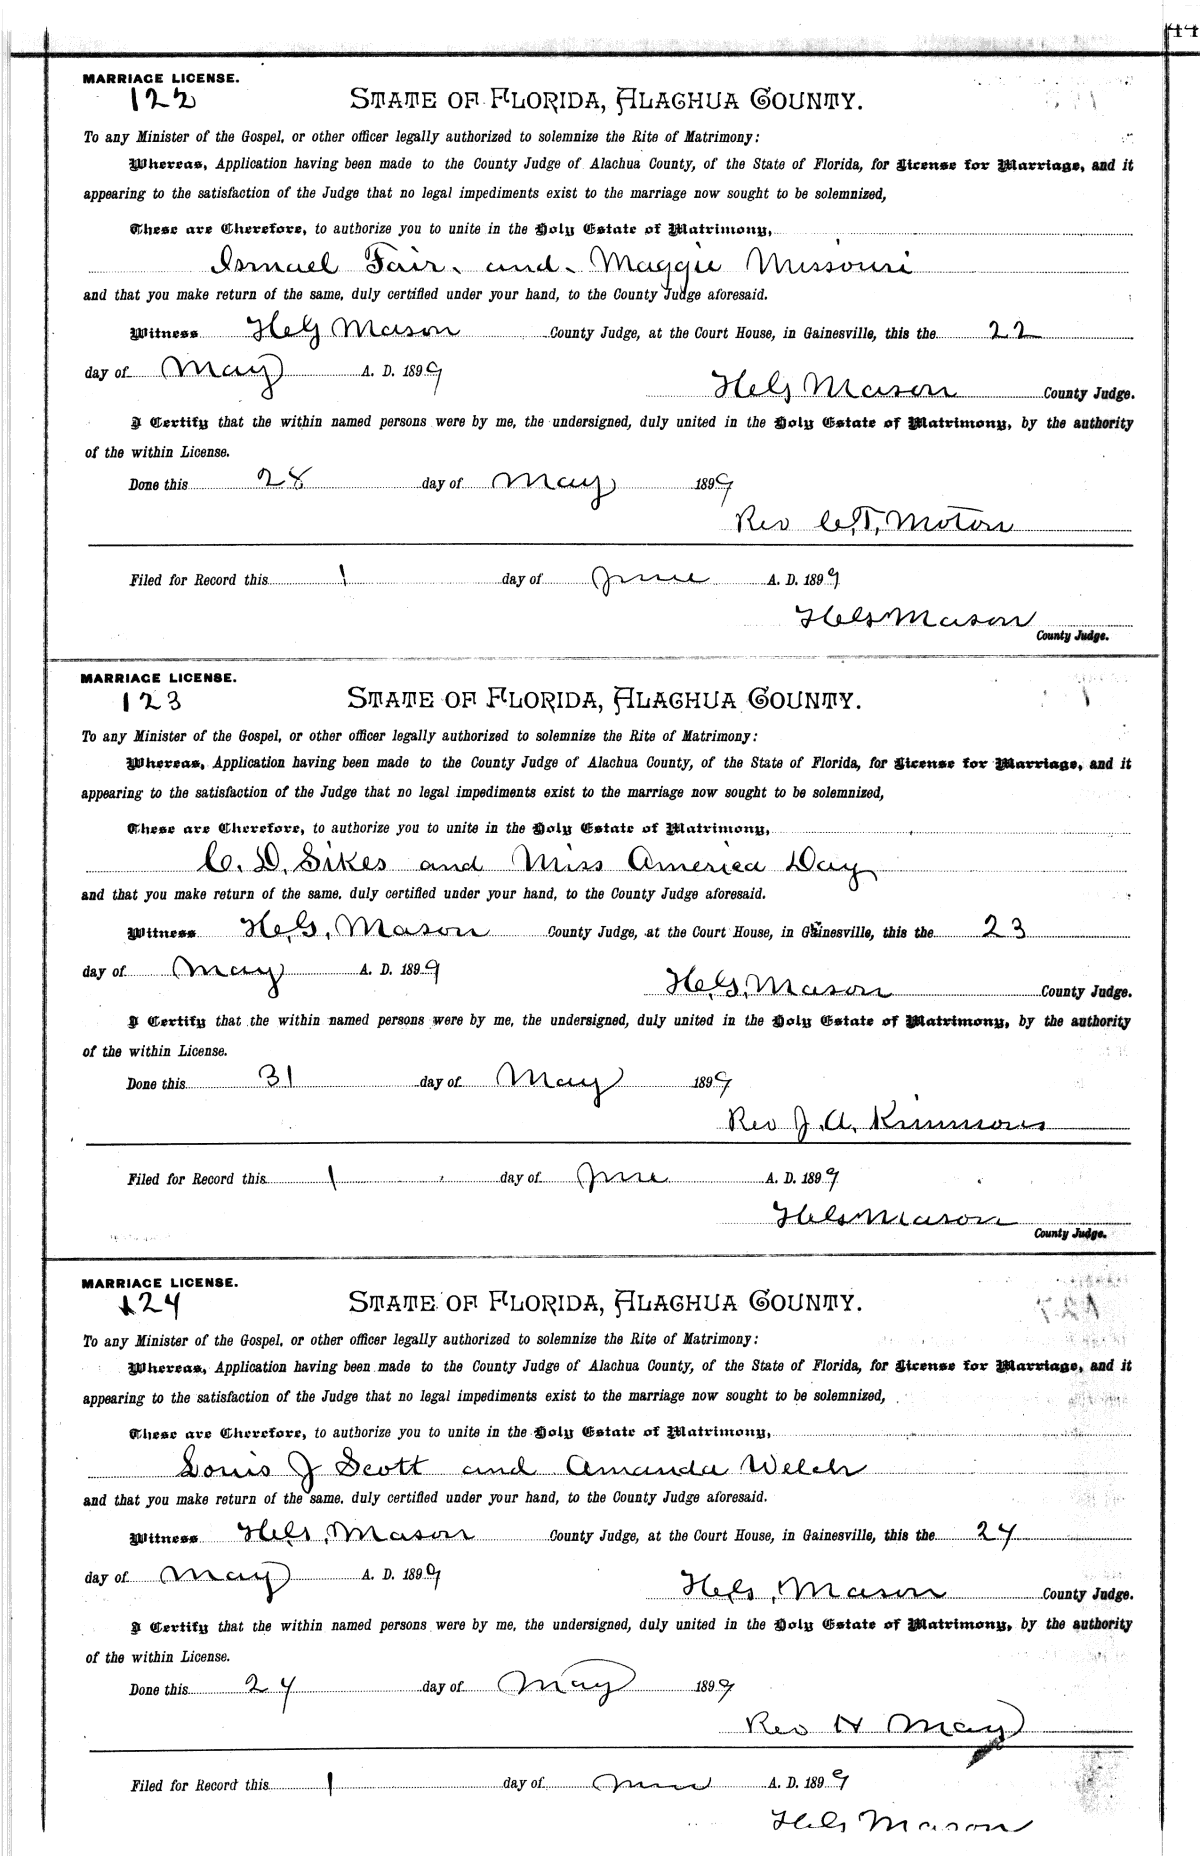 44
MARRIAGE LICENSE.
122
STATE OF FLORIDA, ALACHUA COUNTY.
To any Minister of the Gospel, or other officer legally authorized to solemnize the Rite of Matrimony:
Whereas, Application having been made to the County Judge of Alachua County, of the State of Florida, for License for Marriage, and it
appearing to the satisfaction of the Judge that no legal impediments exist to the marriage now sought to be solemnized,
These are Therefore, to authorize you to unite in the Holy Estate of Matrimony,
Ismael Fair. and. Maggie Missouri
and that you make return of the same, duly certified under your hand, to the County Judge aforesaid.
Witness H.G. Mason County Judge, at the Court House, in Gainesville, this the 22
day of May A. D. 1899
H.G. Mason County Judge.
I Certify that the within named persons were by me, the undersigned, duly united in the Holy Estate of Matrimony, by the authority
of the within License.
Done this 28 day of May 1899
Rev C.T. Moton
Filed for Record this 1 day of June A. D. 1899
H.G. Mason
County Judge.
MARRIAGE LICENSE.
123
STATE OF FLORIDA, ALACHUA COUNTY.
To any Minister of the Gospel, or other officer legally authorized to solemnize the Rite of Matrimony:
Whereas, Application having been made to the County Judge of Alachua County, of the State of Florida, for License for Marriage, and it
appearing to the satisfaction of the Judge that no legal impediments exist to the marriage now sought to be solemnized,
These are Therefore, to authorize you to unite in the Holy Estate of Matrimony,
C. D. Sikes and Miss America Day
and that you make return of the same, duly certified under your hand, to the County Judge aforesaid.
Witness H.G. Mason County Judge, at the Court House, in Gainesville, this the 23
day of May A. D. 1899
H.G. Mason County Judge.
I Certify that the within named persons were by me, the undersigned, duly united in the Holy Estate of Matrimony, by the authority
of the within License.
Done this 31 day of May 1899
Rev J. A. Kimmons
Filed for Record this 1 day of June A. D. 1899
H.G. Mason
County Judge.
MARRIAGE LICENSE.
124
STATE OF FLORIDA, ALACHUA COUNTY.
To any Minister of the Gospel, or other officer legally authorized to solemnize the Rite of Matrimony:
Whereas, Application having been made to the County Judge of Alachua County, of the State of Florida, for License for Marriage, and it
appearing to the satisfaction of the Judge that no legal impediments exist to the marriage now sought to be solemnized,
These are Therefore, to authorize you to unite in the Holy Estate of Matrimony,
Louis J Scott and Amanda Welch
and that you make return of the same, duly certified under your hand, to the County Judge aforesaid.
Witness H.G. Mason County Judge, at the Court House, in Gainesville, this the 24
day of May A. D. 1899
H.G. Mason County Judge.
I Certify that the within named persons were by me, the undersigned, duly united in the Holy Estate of Matrimony, by the authority
of the within License.
Done this 24 day of May 1899
Rev H May
Filed for Record this 1 day of June A. D. 1899
H.G. Mason